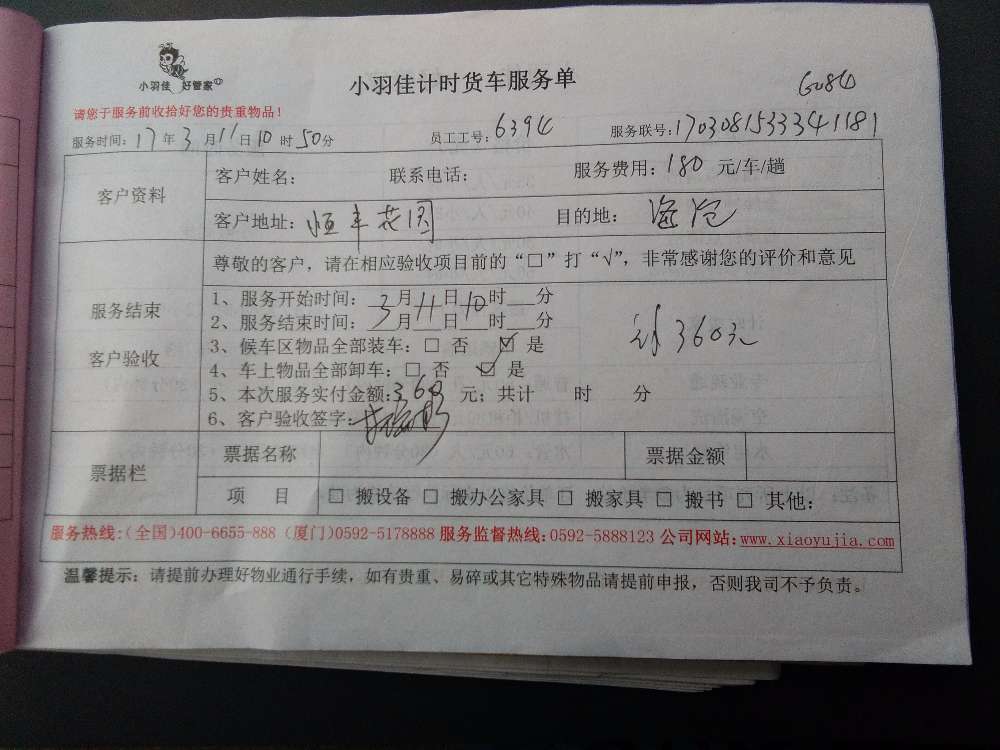 小羽佳 好管家
小羽佳计时货车服务单
请您于服务前收拾好您的贵重物品！
服务时间：17年3月11日10时50分 员工工号：6394 服务联号：1703081533341181
客户资料
客户姓名： 联系电话： 服务费用：180元/车/趟
客户地址：恒丰花园 目的地：海沧
尊敬的客户，请在相应验收项目前的“□”打“√”，非常感谢您的评价和意见
服务结束
客户验收
1、服务开始时间：3月11日10时___分
2、服务结束时间：3月11日___时___分
3、候车区物品全部装车：□ 否 ☑ 是
4、车上物品全部卸车：□ 否 ☑ 是
5、本次服务实付金额：360元；共计 时 分
6、客户验收签字：
360元
票据栏
票据名称 票据金额
项 目 □ 搬设备 □ 搬办公家具 □ 搬家具 □ 搬书 □ 其他：
服务热线：(全国)400-6655-888 (厦门)0592-5178888 服务监督热线：0592-5888123 公司网站：www.xiaoyujia.com
温馨提示：请提前办理好物业通行手续，如有贵重、易碎或其它特殊物品请提前申报，否则我司不予负责。